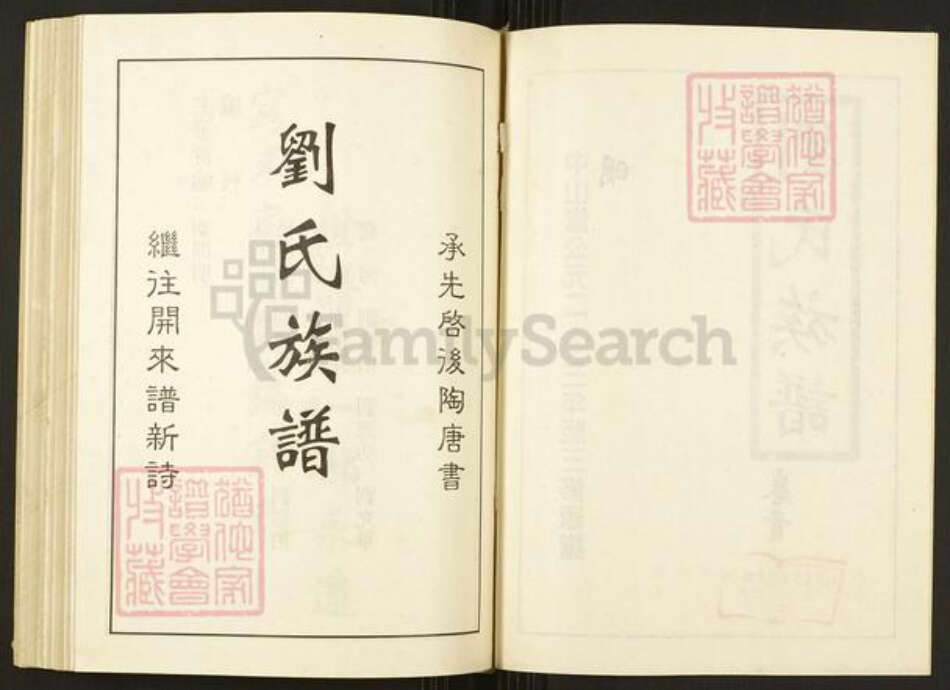 承先啓後陶唐書
劉氏族譜
繼往開來譜新詩
FamilySearch
猶他家
譜學會
收藏
猶他家
譜學會
收藏